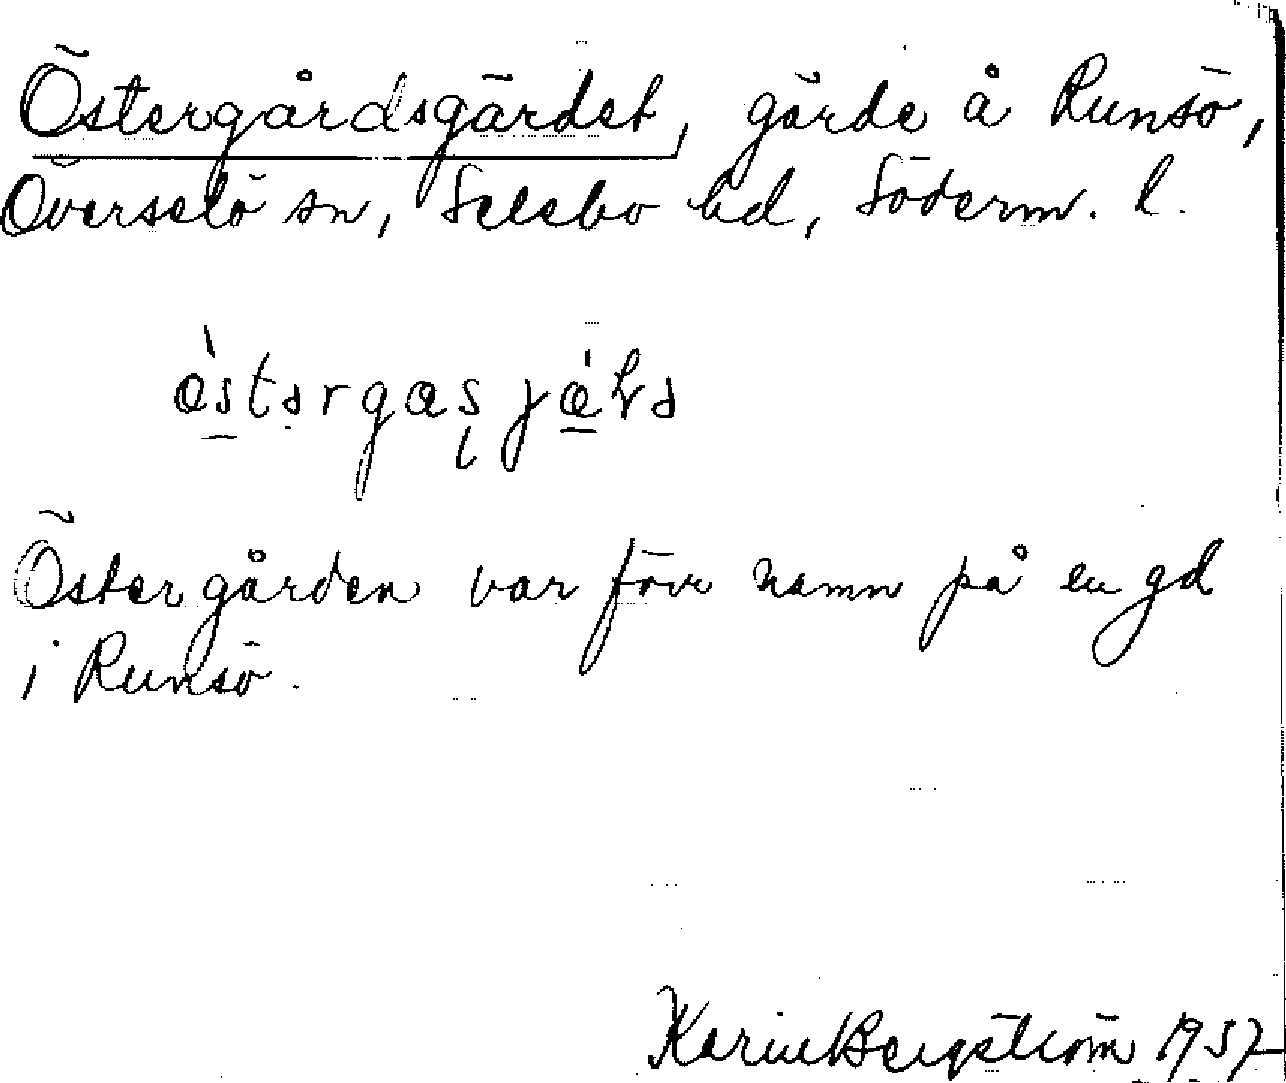 Östergårdsgärdet, gärde å Runsö,
Överselö sn, Selebo hd, Söderm. l.
Östergården var förr namn på en gd
i Runsö.
Karin Bergström 1957